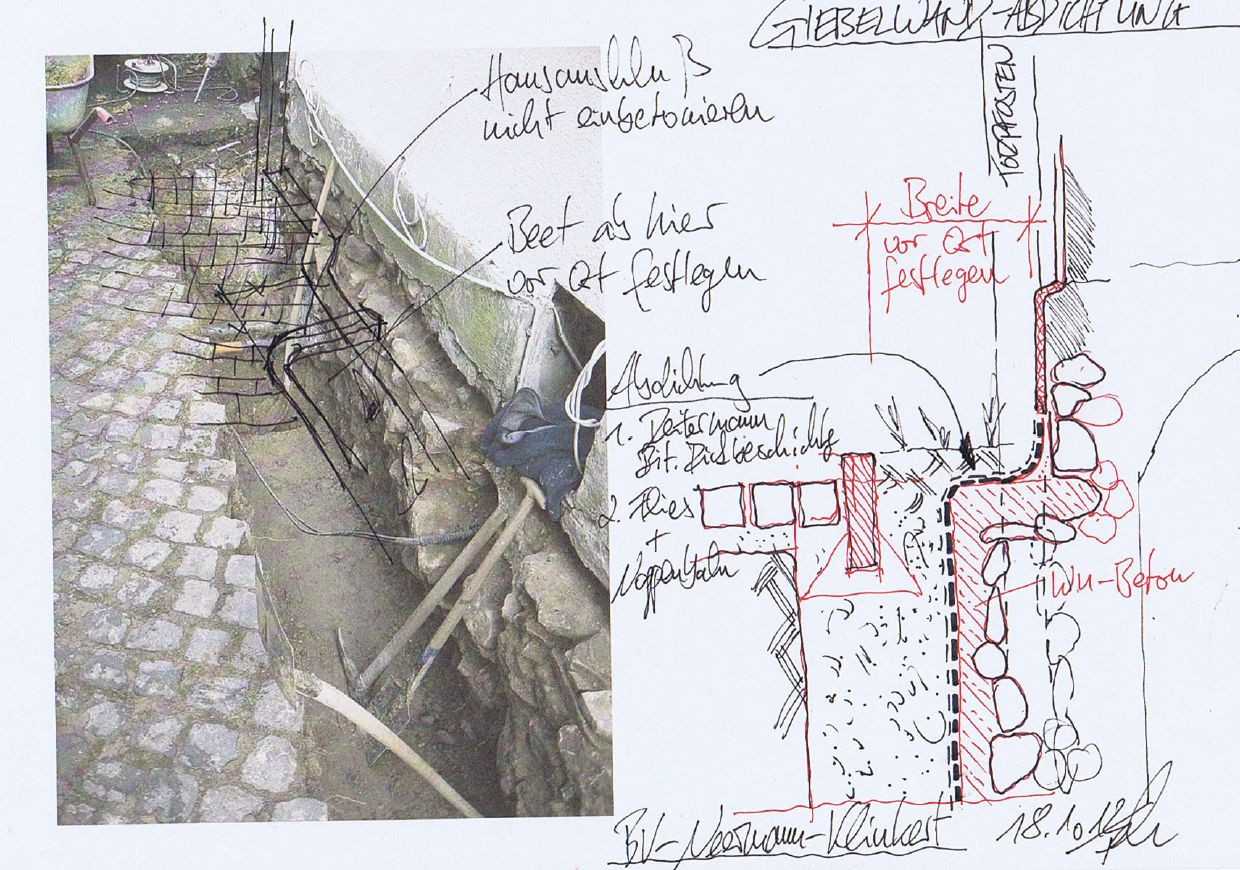 GIEBELWAND-ABDICHTUNG
Hausanschluß
nicht einbetonieren
TORPFOSTEN
Breite
vor Ort
festlegen
Beet ab hier
vor Ort festlegen
Abdichtung
1. Deitermann
Bit. Dickbeschichtg
2. Vlies
+
Noppenbahn
WU-Beton
BV-
-Klinkert
18.10.12